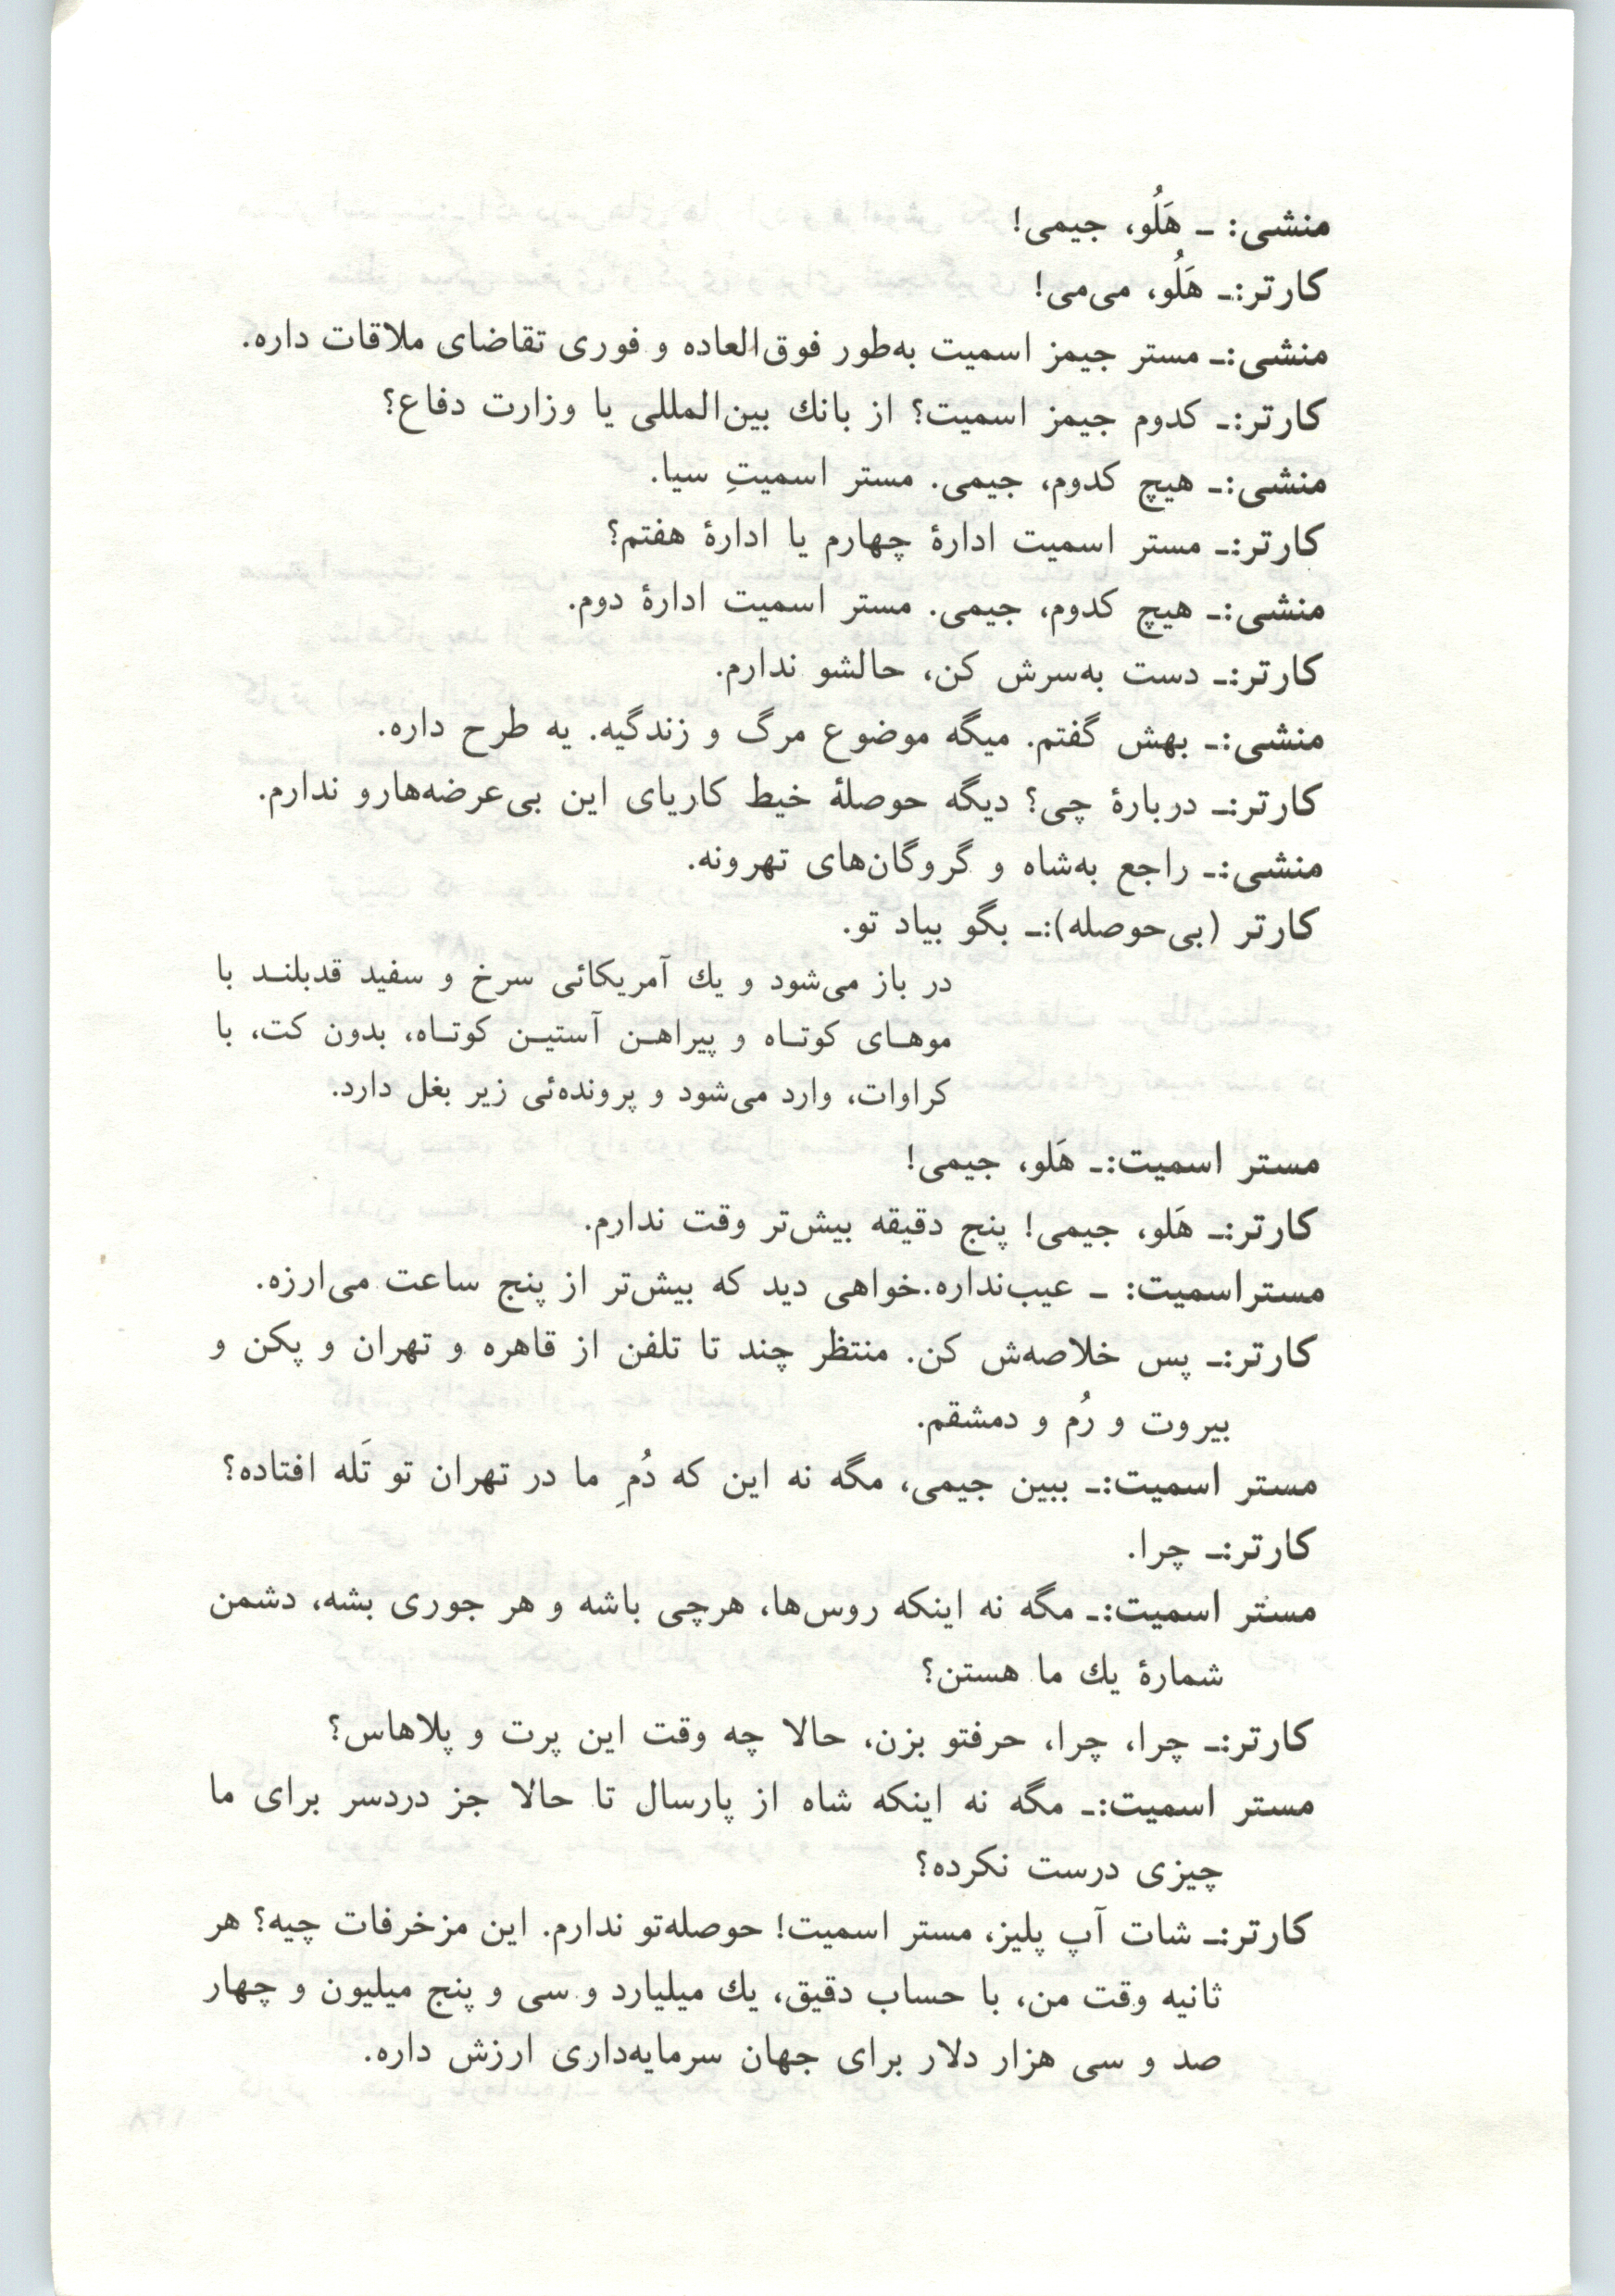 منشی: ـ هَلُو، جیمی!
کارتر:ـ هَلُو، می‌می!
منشی:ـ مستر جیمز اسمیت به‌طور فوق‌العاده و فوری تقاضای ملاقات داره.
کارتر:ـ کدوم جیمز اسمیت؟ از بانك بین‌المللی یا وزارت دفاع؟
منشی:ـ هیچ کدوم، جیمی. مستر اسمیتِ سیا.
کارتر:ـ مستر اسمیت ادارهٔ چهارم یا ادارهٔ هفتم؟
منشی:ـ هیچ کدوم، جیمی. مستر اسمیت ادارهٔ دوم.
کارتر:ـ دست به‌سرش کن، حالشو ندارم.
منشی:ـ بهش گفتم. میگه موضوع مرگ و زندگیه. یه طرح داره.
کارتر:ـ دربارهٔ چی؟ دیگه حوصلهٔ خیط کاریای این بی‌عرضه‌هارو ندارم.
منشی:ـ راجع به‌شاه و گروگان‌های تهرونه.
کارتر (بی‌حوصله):ـ بگو بیاد تو.
در باز می‌شود و یك آمریکائی سرخ و سفید قدبلنـد با
موهـای کوتـاه و پیراهـن آستیـن کوتـاه، بدون کت، با
کراوات، وارد می‌شود و پرونده‌ئی زیر بغل دارد.
مستر اسمیت:ـ هَلو، جیمی!
کارتر:ـ هَلو، جیمی! پنج دقیقه بیش‌تر وقت ندارم.
مستراسمیت: ـ عیب‌نداره.خواهی دید که بیش‌تر از پنج ساعت می‌ارزه.
کارتر:ـ پس خلاصه‌ش کن. منتظر چند تا تلفن از قاهره و تهران و پکن و
بیروت و رُم و دمشقم.
مستر اسمیت:ـ ببین جیمی، مگه نه این که دُمِ ما در تهران تو تَله افتاده؟
کارتر:ـ چرا.
مستر اسمیت:ـ مگه نه اینکه روس‌ها، هرچی باشه و هر جوری بشه، دشمن
شمارهٔ یك ما هستن؟
کارتر:ـ چرا، چرا، حرفتو بزن، حالا چه وقت این پرت و پلاهاس؟
مستر اسمیت:ـ مگه نه اینکه شاه از پارسال تا حالا جز دردسر برای ما
چیزی درست نکرده؟
کارتر:ـ شات آپ پلیز، مستر اسمیت! حوصله‌تو ندارم. این مزخرفات چیه؟ هر
ثانیه وقت من، با حساب دقیق، یك میلیارد و سی و پنج میلیون و چهار
صد و سی هزار دلار برای جهان سرمایه‌داری ارزش داره.